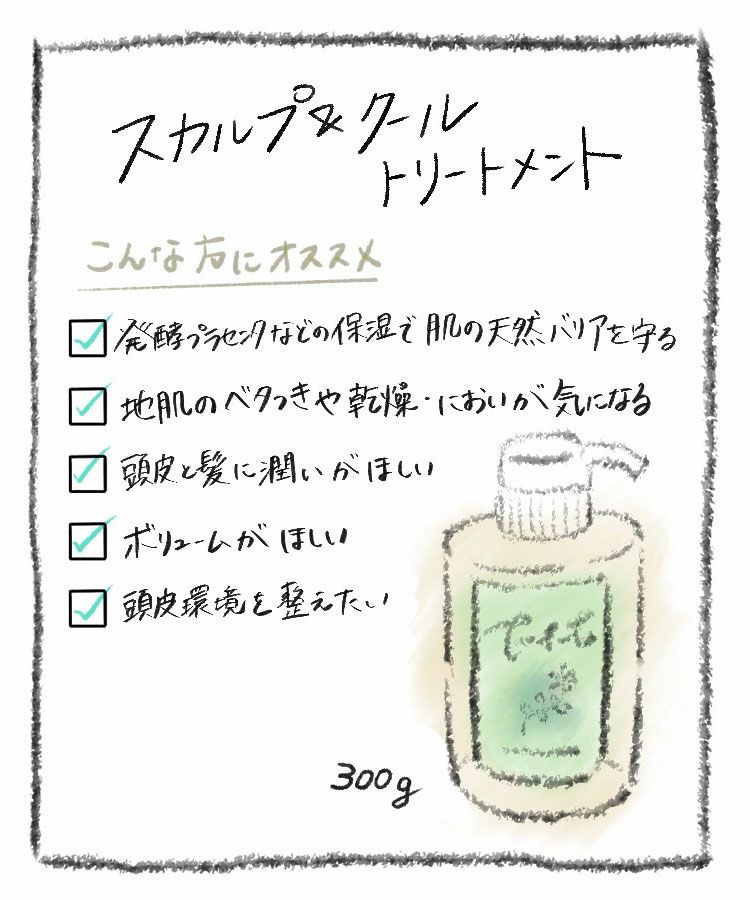 スカルプ&クール
トリートメント
こんな方にオススメ
発酵プラセンタなどの保湿で肌の天然バリアを守る
地肌のベタつきや乾燥・においが気になる
頭皮と髪に潤いがほしい
ボリュームがほしい
頭皮環境を整えたい
300g